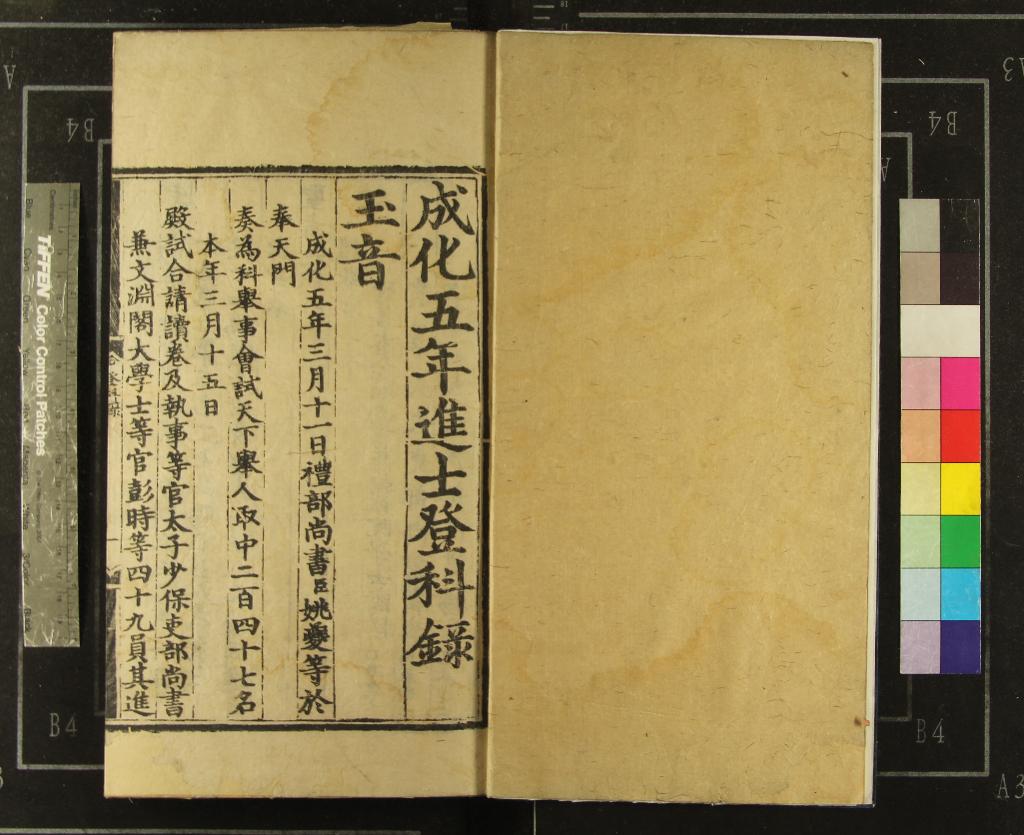 成化五年進士登科錄
玉音
成化五年三月十一日禮部尚書臣姚夔等於
奉天門
奏為科舉事會試天下舉人取中二百四十七名
本年三月十五日
殿試合請讀卷及執事等官太子少保吏部尚書
兼文淵閣大學士等官彭時等四十九員其進
登科錄
TIFFEN Color Control Patches
B4
B4
B4
B4
A3
A3
A
A